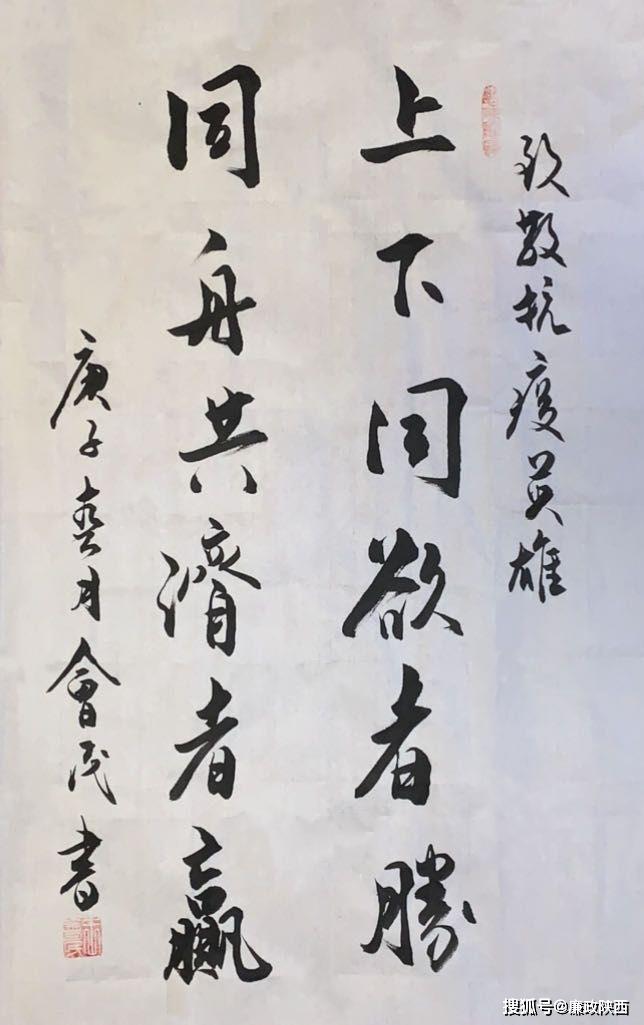 致敬抗疫英雄
上下同欲者勝
同舟共濟者贏
庚子月會民書
搜狐号@廉政陕西